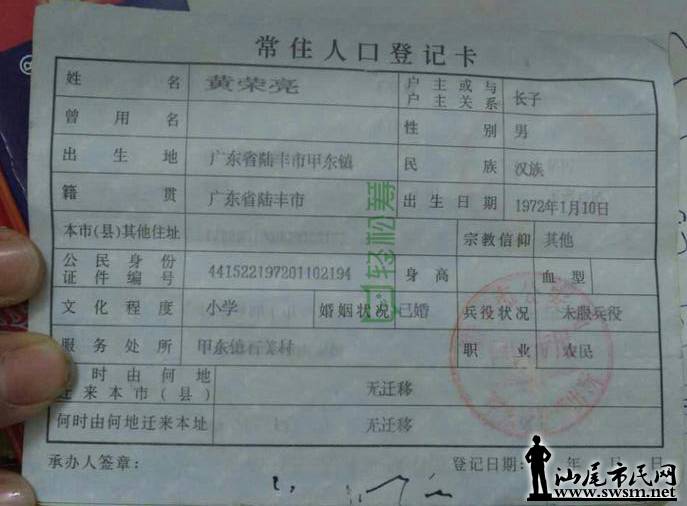 常住人口登记卡
姓名 黄荣亮 户主或与户主关系 长子
曾用名 性别 男
出生地 广东省陆丰市甲东镇 民族 汉族
籍贯 广东省陆丰市 出生日期 1972年1月10日
本市(县)其他住址 宗教信仰 其他
公民身份证件编号 441522197201102194 身高 血型
文化程度 小学 婚姻状况 已婚 兵役状况 未服兵役
服务处所 甲东镇石美村 职业 农民
时由何地迁来本市(县) 无迁移
何时由何地迁来本址 无迁移
承办人签章: 登记日期: 年 月 日
轻松筹
汕尾市民网
www.swsm.net